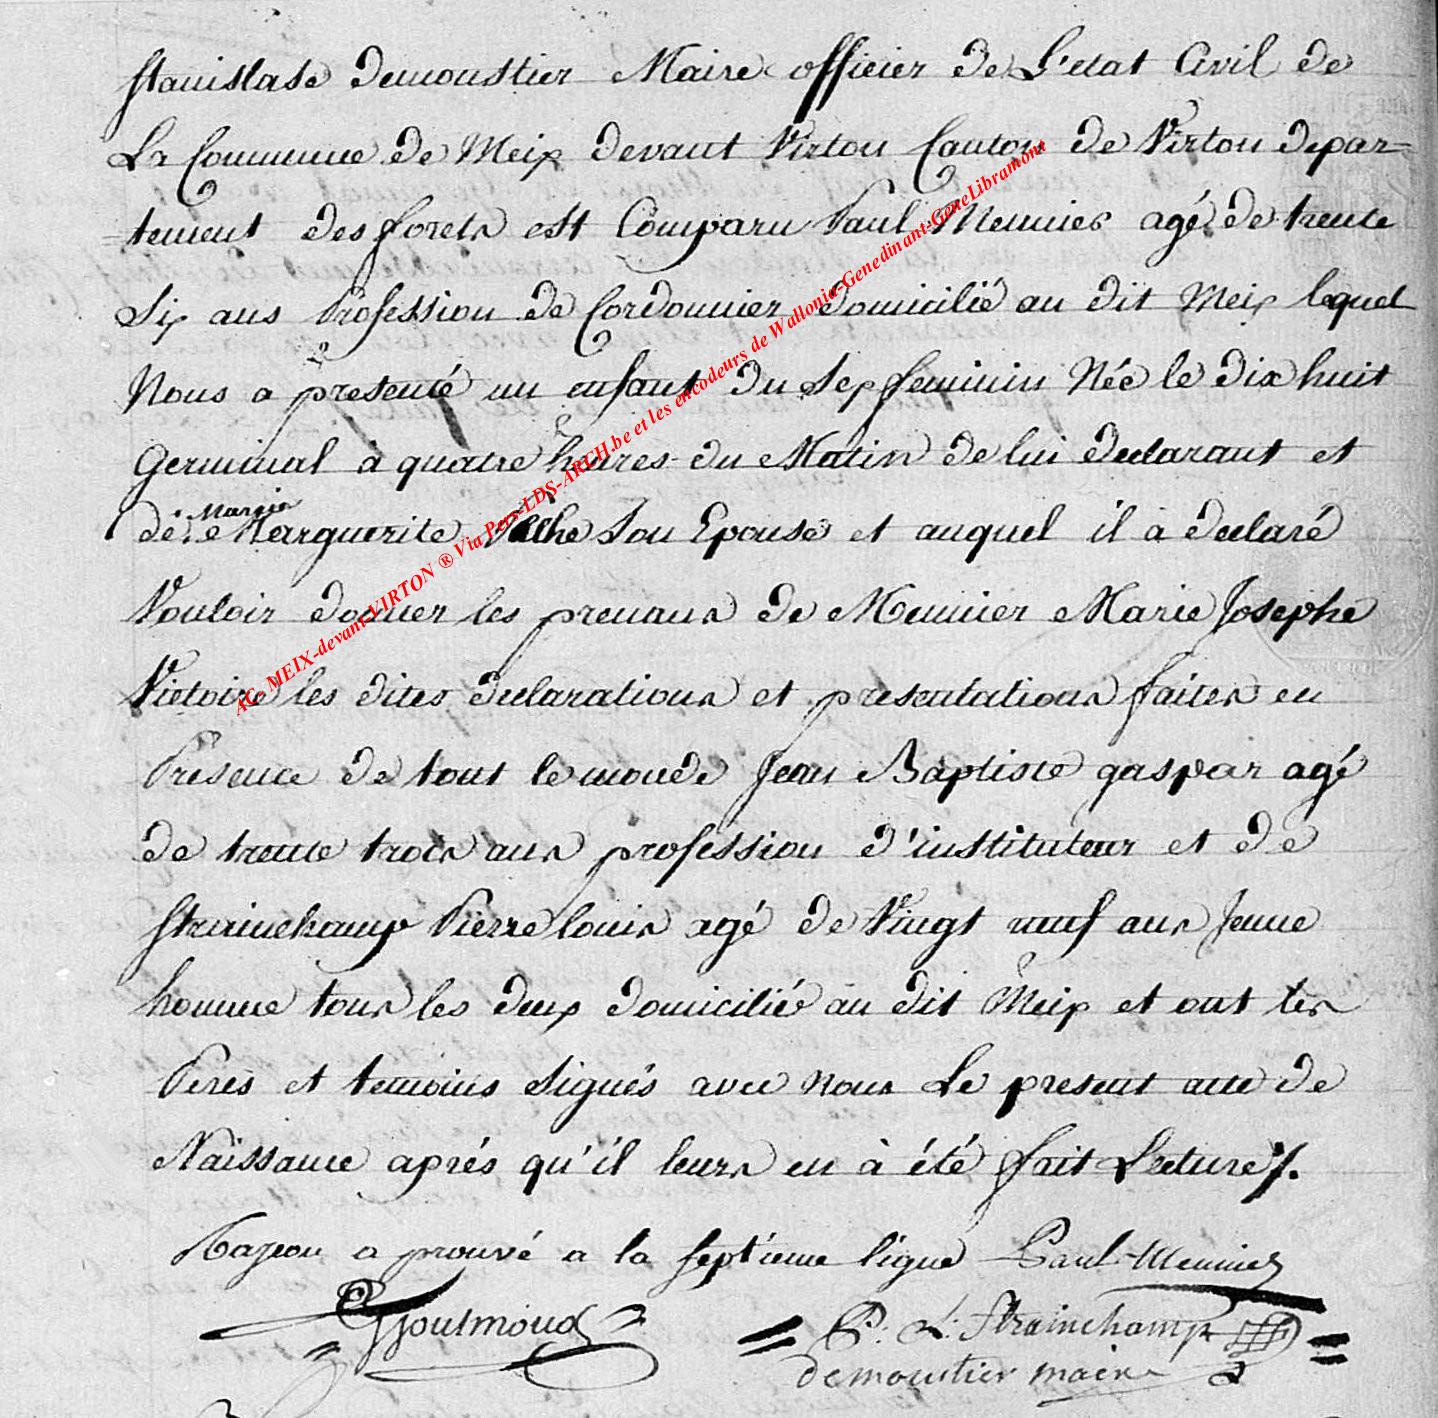 Stanislase Demoustier Maire officier De L'etat Civil de
La Commune de Meix devant Virton Canton de Virton depar=
=tement des forets est Comparu Paul Meunier agé de trente
Six ans Profession de Cordonnier domicilié au dit Meix lequel
Nous a presenté un enfant du Sex feminin Née le dix huit
Germinal à quatre heures du Matin de lui declarant et
de Marguerite Son Epouse et auquel il à declaré
Vouloir donner les prenaus de Meunier Marie Josephe
Victoire les dites declarations et presentations faites en
Présence de tout le monde Jean Baptiste gaspar agé
de trente trois ans profession d'instituteur et de
Strainchamp Pierre louis agé de Vingt neuf ans Jeune
homme tous les deux domicilié au dit Meix et ont les
Peres et temoins Signés avec nous Le present acte de
Naissance aprés qu'il leurs en à été fait Lecture /.
a prouvé a la Septieme ligne Paul Meunier
P: L: Strainchamp
demoustier maire
AC. MEIX-devant-VIRTON ® Via Pers-LDS-ARCH.be et les encodeurs de Wallonia-Genedinant-GeneLibramont